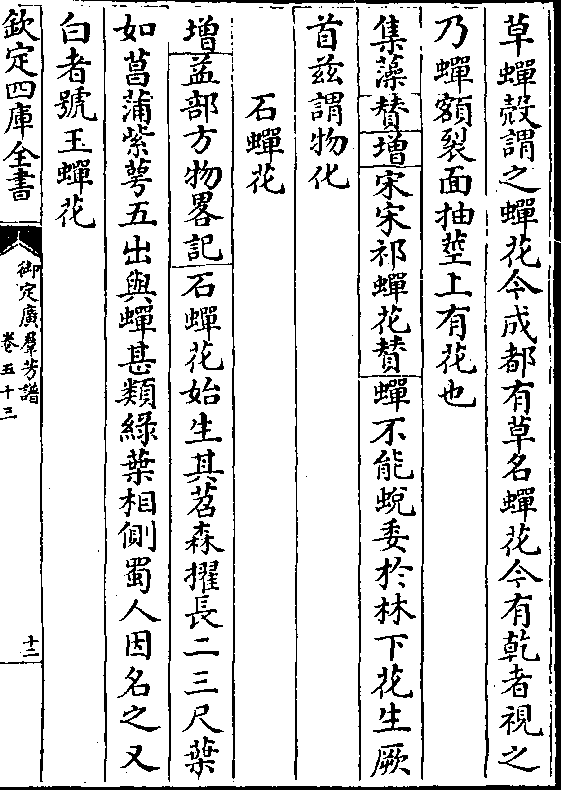 草蟬殻謂之蟬花今成都有草名蟬花今有乾者視之
乃蟬額裂面抽莖上有花也
集藻贊增宋宋祁蟬花贊蟬不能蛻委於林下花生厥
首兹謂物化
石蟬花
增益部方物畧記石蟬花始生其苕森擢長二三尺葉
如菖蒲紫萼五出與蟬甚類綠葉相側蜀人因名之又
白者號玉蟬花
欽定四庫全書
御定廣羣芳譜
卷五十三
十二